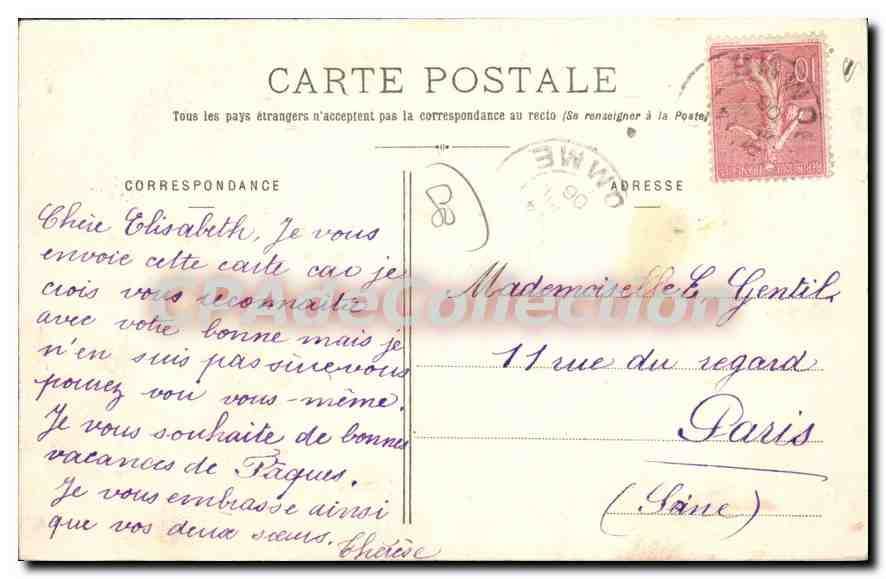 CARTE POSTALE
Tous les pays étrangers n'acceptent pas la correspondance au recto (Se renseigner à la Poste)
CORRESPONDANCE
Chère Elisabeth, Je vous
envoie cette carte car je
crois vous reconnaitre
avec votre bonne mais je
n'en suis pas sûre vous
pourrez voir vous-même.
Je vous souhaite de bonnes
vacances de Pâques.
Je vous embrasse ainsi
que vos deux sœurs.
Thérèse
ADRESSE
Mademoiselle E. Gentil,
11 rue du regard
Paris
(Seine)
10
OMME
06
CPAdeCollection